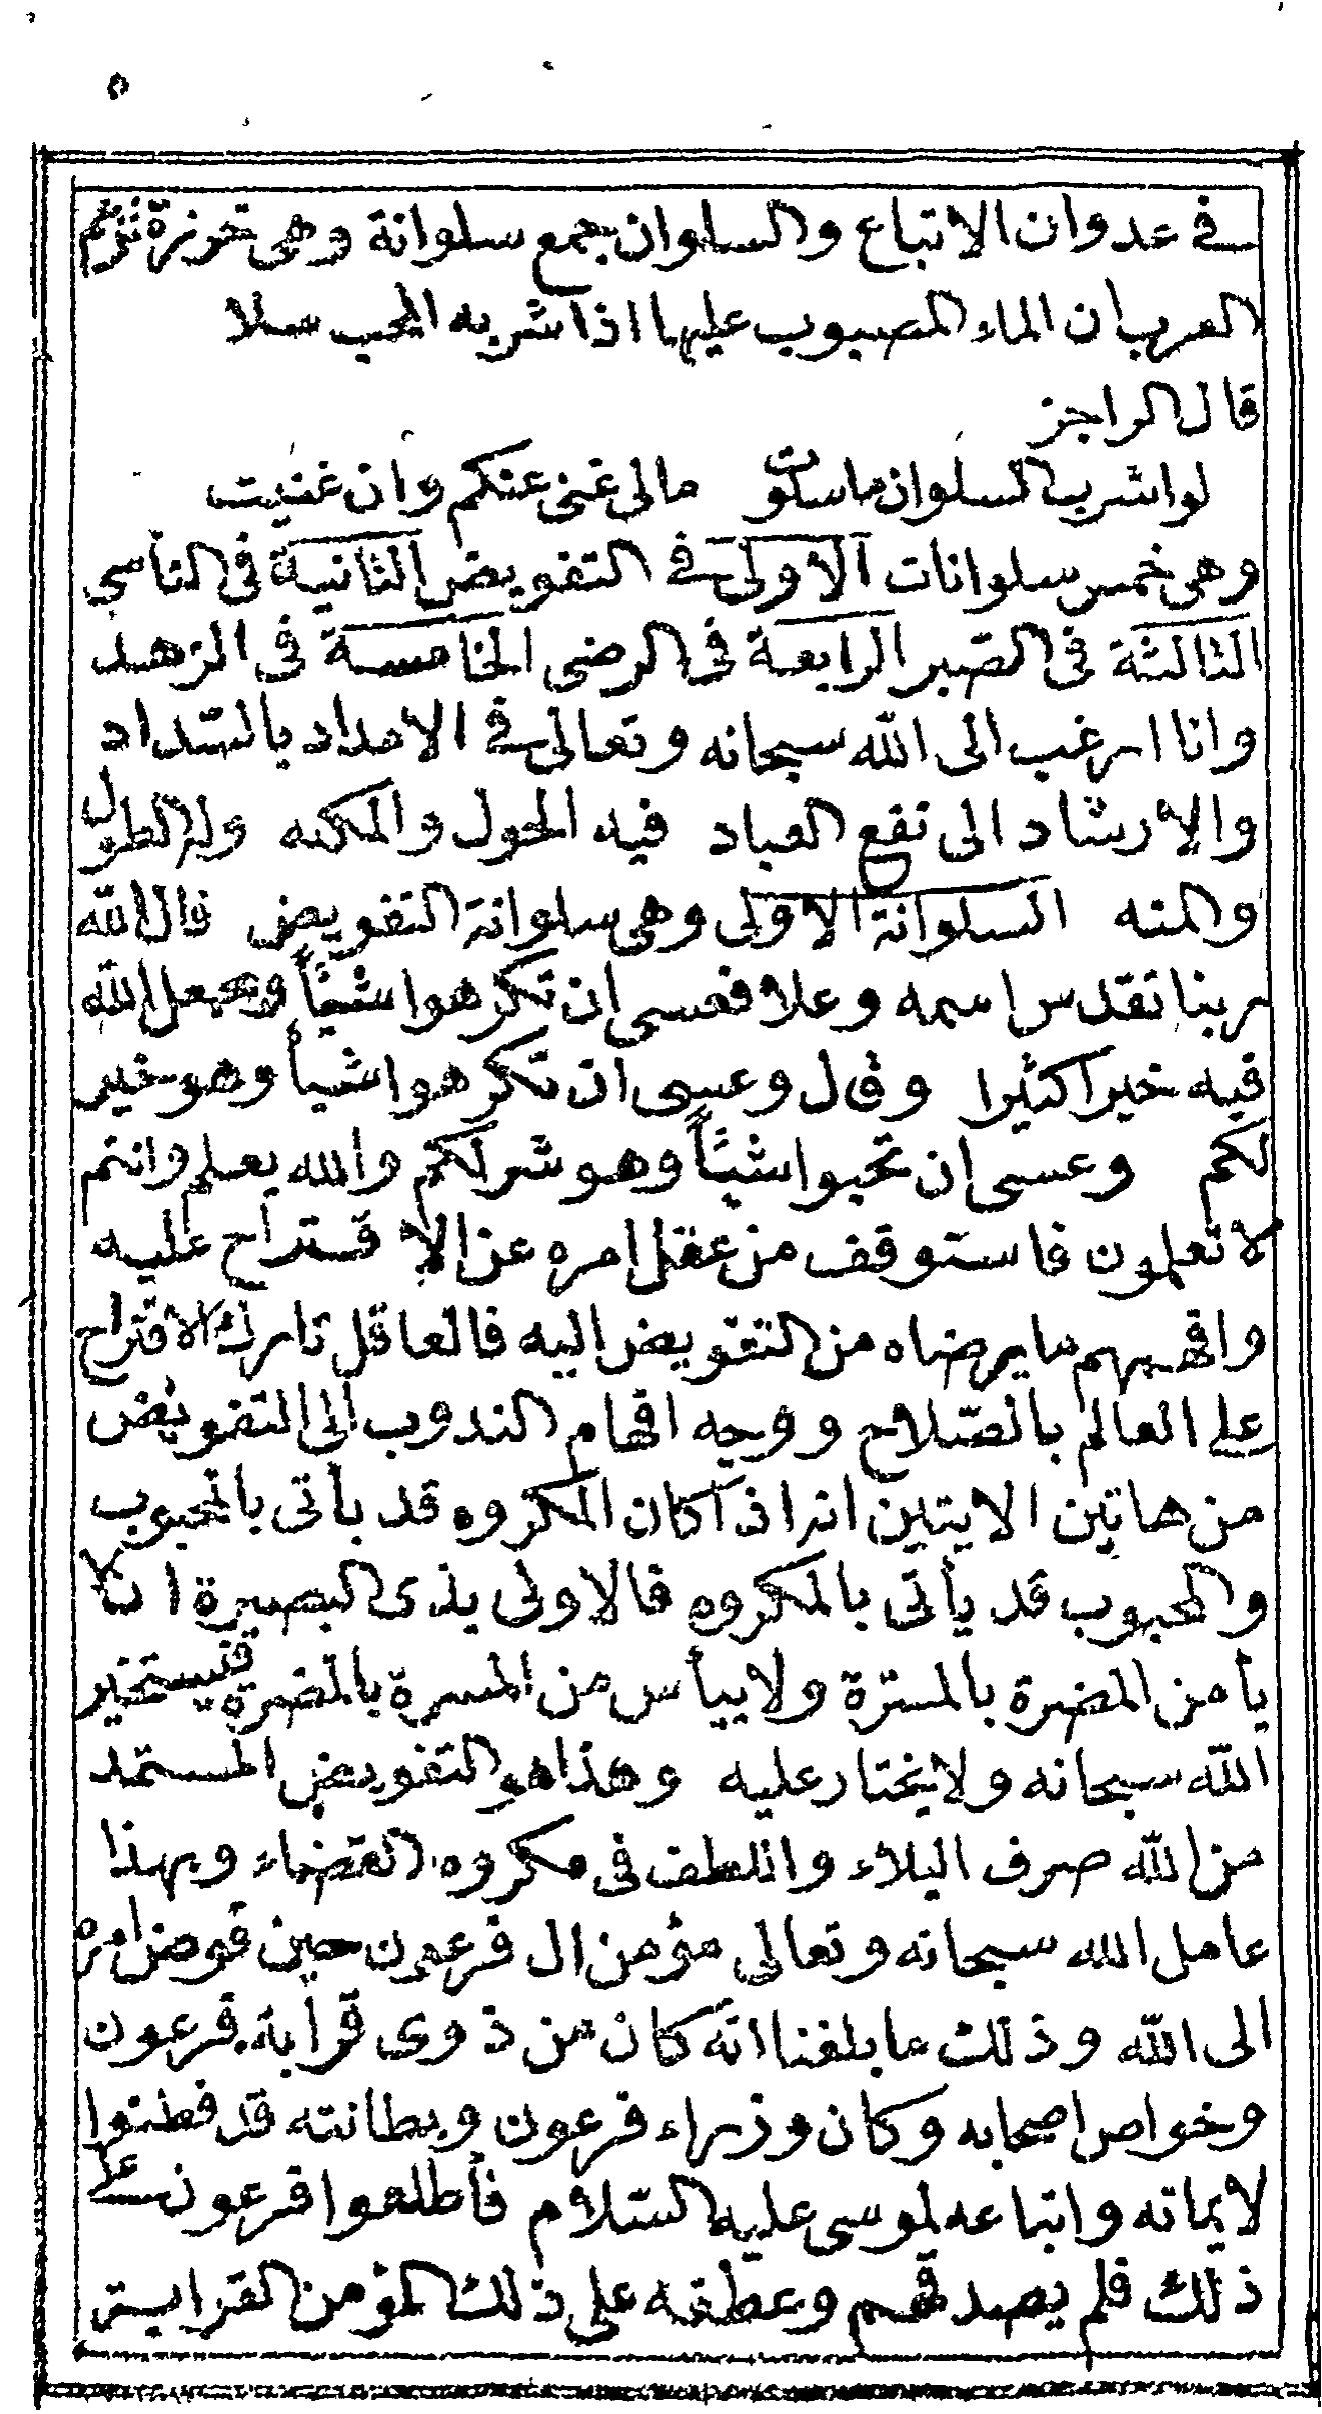 ٥
في عدوان الاتباع والسلوان جمع سلوانة وهى خرزة تزعم
العرب ان الماء المصبوب عليها اذا شربه المحب سلا
قال الراجز
لو اشرب السلوان ما سلوت مالى غنى عنكم وان غنيت
وهى خمس سلوانات الاولى في التفويض الثانية فى التأسى
الثالثة فى الصبر الرابعة فى الرضى الخامسة فى الزهد
وانا ارغب الى اللّه سبحانه وتعالى في الامداد بالسّداد
والارشاد الى نفع العباد فيه الحول والمكنه وله الطول
والمنه السلوانة الاولى وهى سلوانة التفويض قال اللّه
ربنا تقدس اسمه وعلا فعسى ان تكرهوا شيئاً ويجعل اللّه
فيه خيرا كثيرا وقال وعسى ان تكرهوا شيأ وهو خير
لكم وعسى ان تحبوا شيئاً وهو شر لكم والله يعلم وانتم
لا تعلمون فاستوقف من عقل امره عن الاقتراح عليه
وافهمهم ما يرضاه من التفويض اليه فالعاقل تارك الاقتراح
على العالم بالصّلاح ووجه افهام الندوب الى التفويض
من هاتين الايتين انه اذا كان المكروه قد يأتى بالمحبوب
والمحبوب قد يأتى بالمكروه فالاولى بذى البصيرة ان لا
يأمن المضرة بالمسرّة ولا ييأس من المسرة بالمضرة فيستخير
اللّه سبحانه ولا يختار عليه وهذا هو التفويض المستمد
من اللّه صرف البلاء واللطف فى مكروه القضاء وبهذا
عامل الله سبحانه وتعالى مؤمن ال فرعون حين فوض امره
الى اللّه وذلك ما بلغنا انّه كان من ذوى قرابة فرعون
وخواص اصحابه وكان وزراء فرعون وبطانته قد فطنوا
لايمانه واتباعه لموسى عليه السّلام فأطلعوا فرعون على
ذلك فلم يصدقهم وعطفه على ذلك المؤمن القرابة